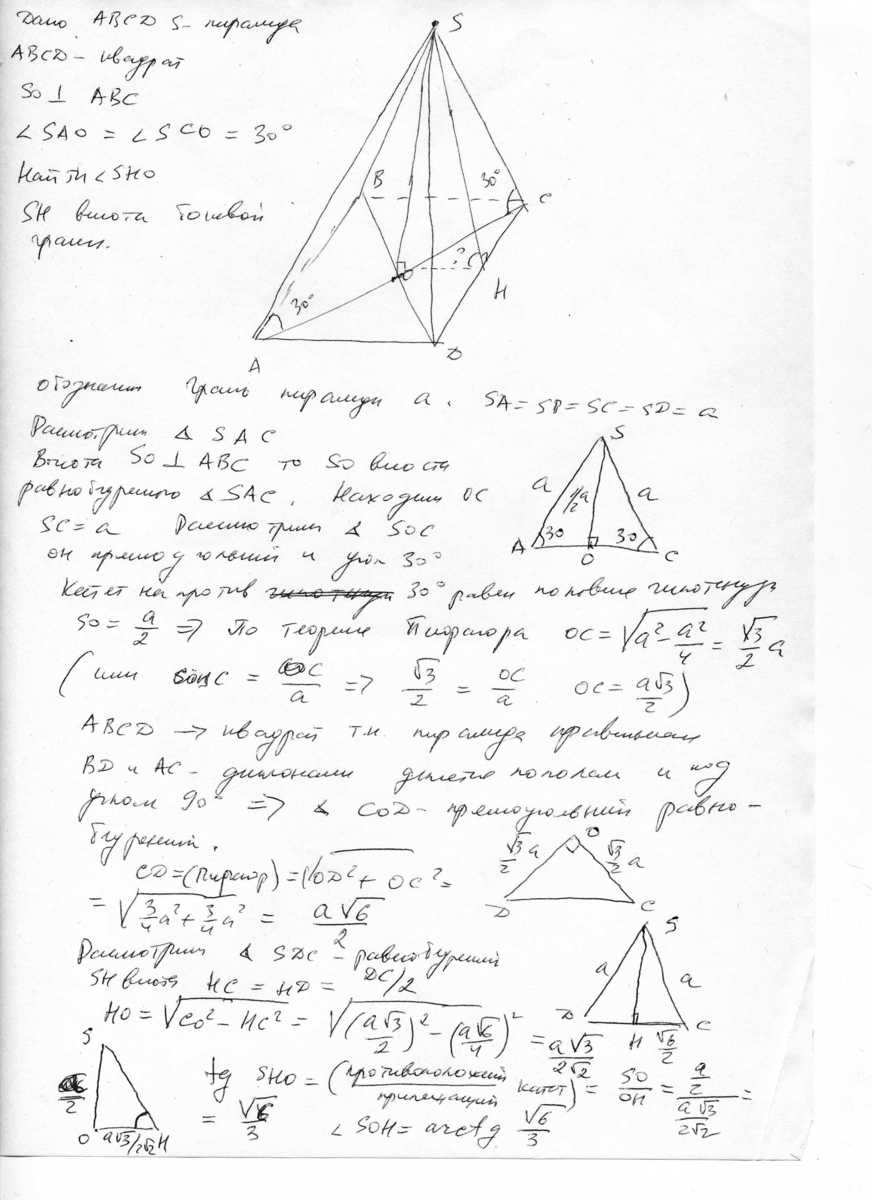 Дано ABCD S - пирамида
ABCD - квадрат
SO ⊥ ABC
∠SAO = ∠SCO = 30°
Найти ∠SHO
SH высота боковой
грани.
S
B
30°
C
O
?
H
30°
A
D
обозначим грань пирамиды a. SA = SB = SC = SD = a
Расмотрим △ SAC
Высота SO ⊥ ABC то SO высота
равнобуреного △ SAC. Находим OC
SC = a Расмотрим △ SOC
он прямоугольний и угол 30°
S
a
1/2 a
a
A
30
O
30
C
Катет на против 30° равен половине гипотенузы
SO = a/2 => По теореме Пифагора OC = √(a² - a²/4) = √3/2 a
(или cos C = OC/a => √3/2 = OC/a OC = a√3/2)
ABCD -> квадрат т.к. пирамида правильная
BD и AC - диагонами делятся пополам и под
углом 90° => △ COD - прямоугольний равно-
буренний.
O
√3/2 a
√3/2 a
D
C
CD = (Пифагор) = √(OD² + OC²) =
= √(3/4 a² + 3/4 a²) = a√6/2
Расмотрим △ SDC - равнобурений
SH высота HC = HD = DC/2
S
a
a
D
H
√6/2
C
HO = √(CO² - HC²) = √((a√3/2)² - (a√6/4)²) = a√3/2√2
S
/2
O
a√3/2√2
H
tg SHO = (противоположий/прилежащий катет) = SO/OH = a/2 / a√3/2√2 =
= √6/3
∠ SOH = arctg √6/3